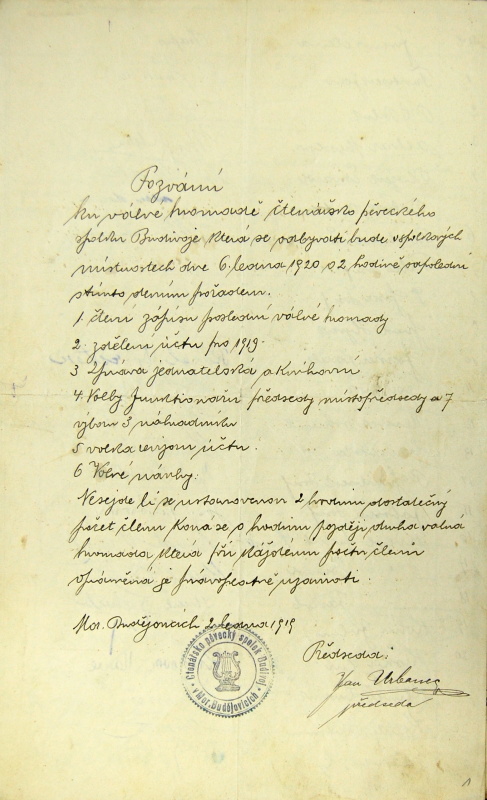 Pozvání
ku válvé hromadě čtenářsko pěveckého
spolku Budivoje která se odbyvati bude v spolkových
místnostech dne 6. ledna 1920 o 2 hodině odpolední
stímto denim pořadem.
1. čtení zápisu poslední válvé hromady
2. zdělení účtu pro 1919.
3 Zpráva jednatelská a knihovní
4. Volby funktionařů předsedy místopředsedy a 7
výborů 3 náhradníků
5 volba revisorů účtu.
6 Volvé návrhy.
Nesejde li se ustanovenou 2 hodinu dostatečný
počet členu koná se o hodinu později druhá valná
hromada která při každém počtu členů
oprávněná je právoplatně usnášeti.
Mor. Budějovicích 2 ledna 1919
Předseda:
Jan Urbanec
předseda
Čtenářsko pěvecký spolek Budivoj
v Mor. Budějovicích
1